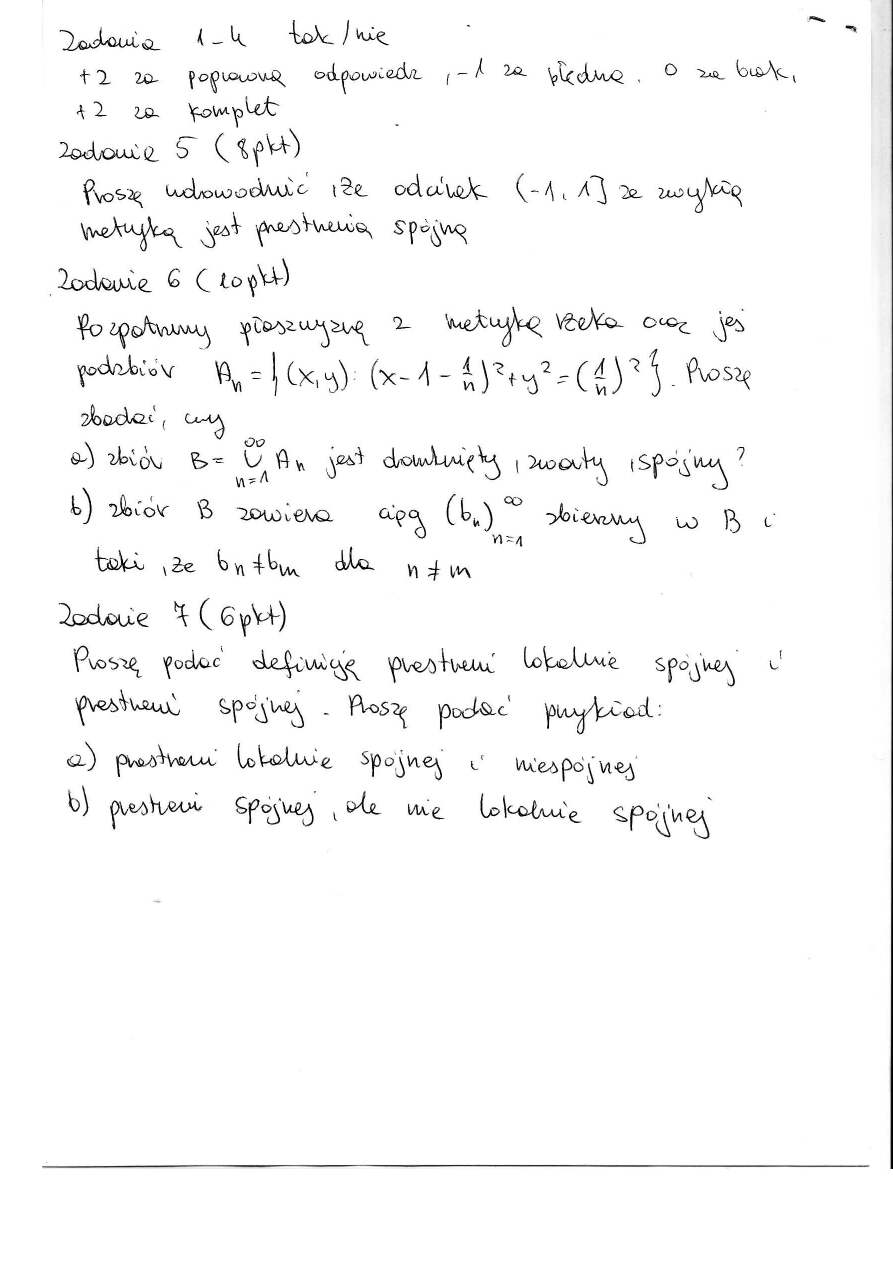 Zadania 1-4 tak/nie
+2 za poprawną odpowiedz, -1 za błędną. 0 za brak,
+2 za komplet
Zadanie 5 (8pkt)
Proszę udowodnić, że odcinek (-1, 1] ze zwykłą
metryką jest przestrzenią spójną
Zadanie 6 (10pkt)
Rozpatrzmy płaszczyznę z metryką rzeka oraz jej
podzbiór A_n = {(x,y): (x-1-1/n)²+y²=(1/n)²}. Proszę
zbadać, czy
a) zbiór B = ∞∪n=1 A_n jest domknięty, zwarty, spójny?
b) zbiór B zawiera ciąg (b_n)∞n=1 zbieżny w B i
taki, że b_n ≠ b_m dla n ≠ m
Zadanie 7 (6pkt)
Proszę podać definicję przestrzeni lokalnie spójnej i
przestrzeni spójnej. Proszę podać przykład:
a) przestrzeni lokalnie spójnej i niespójnej
b) przestrzeni spójnej, ale nie lokalnie spójnej